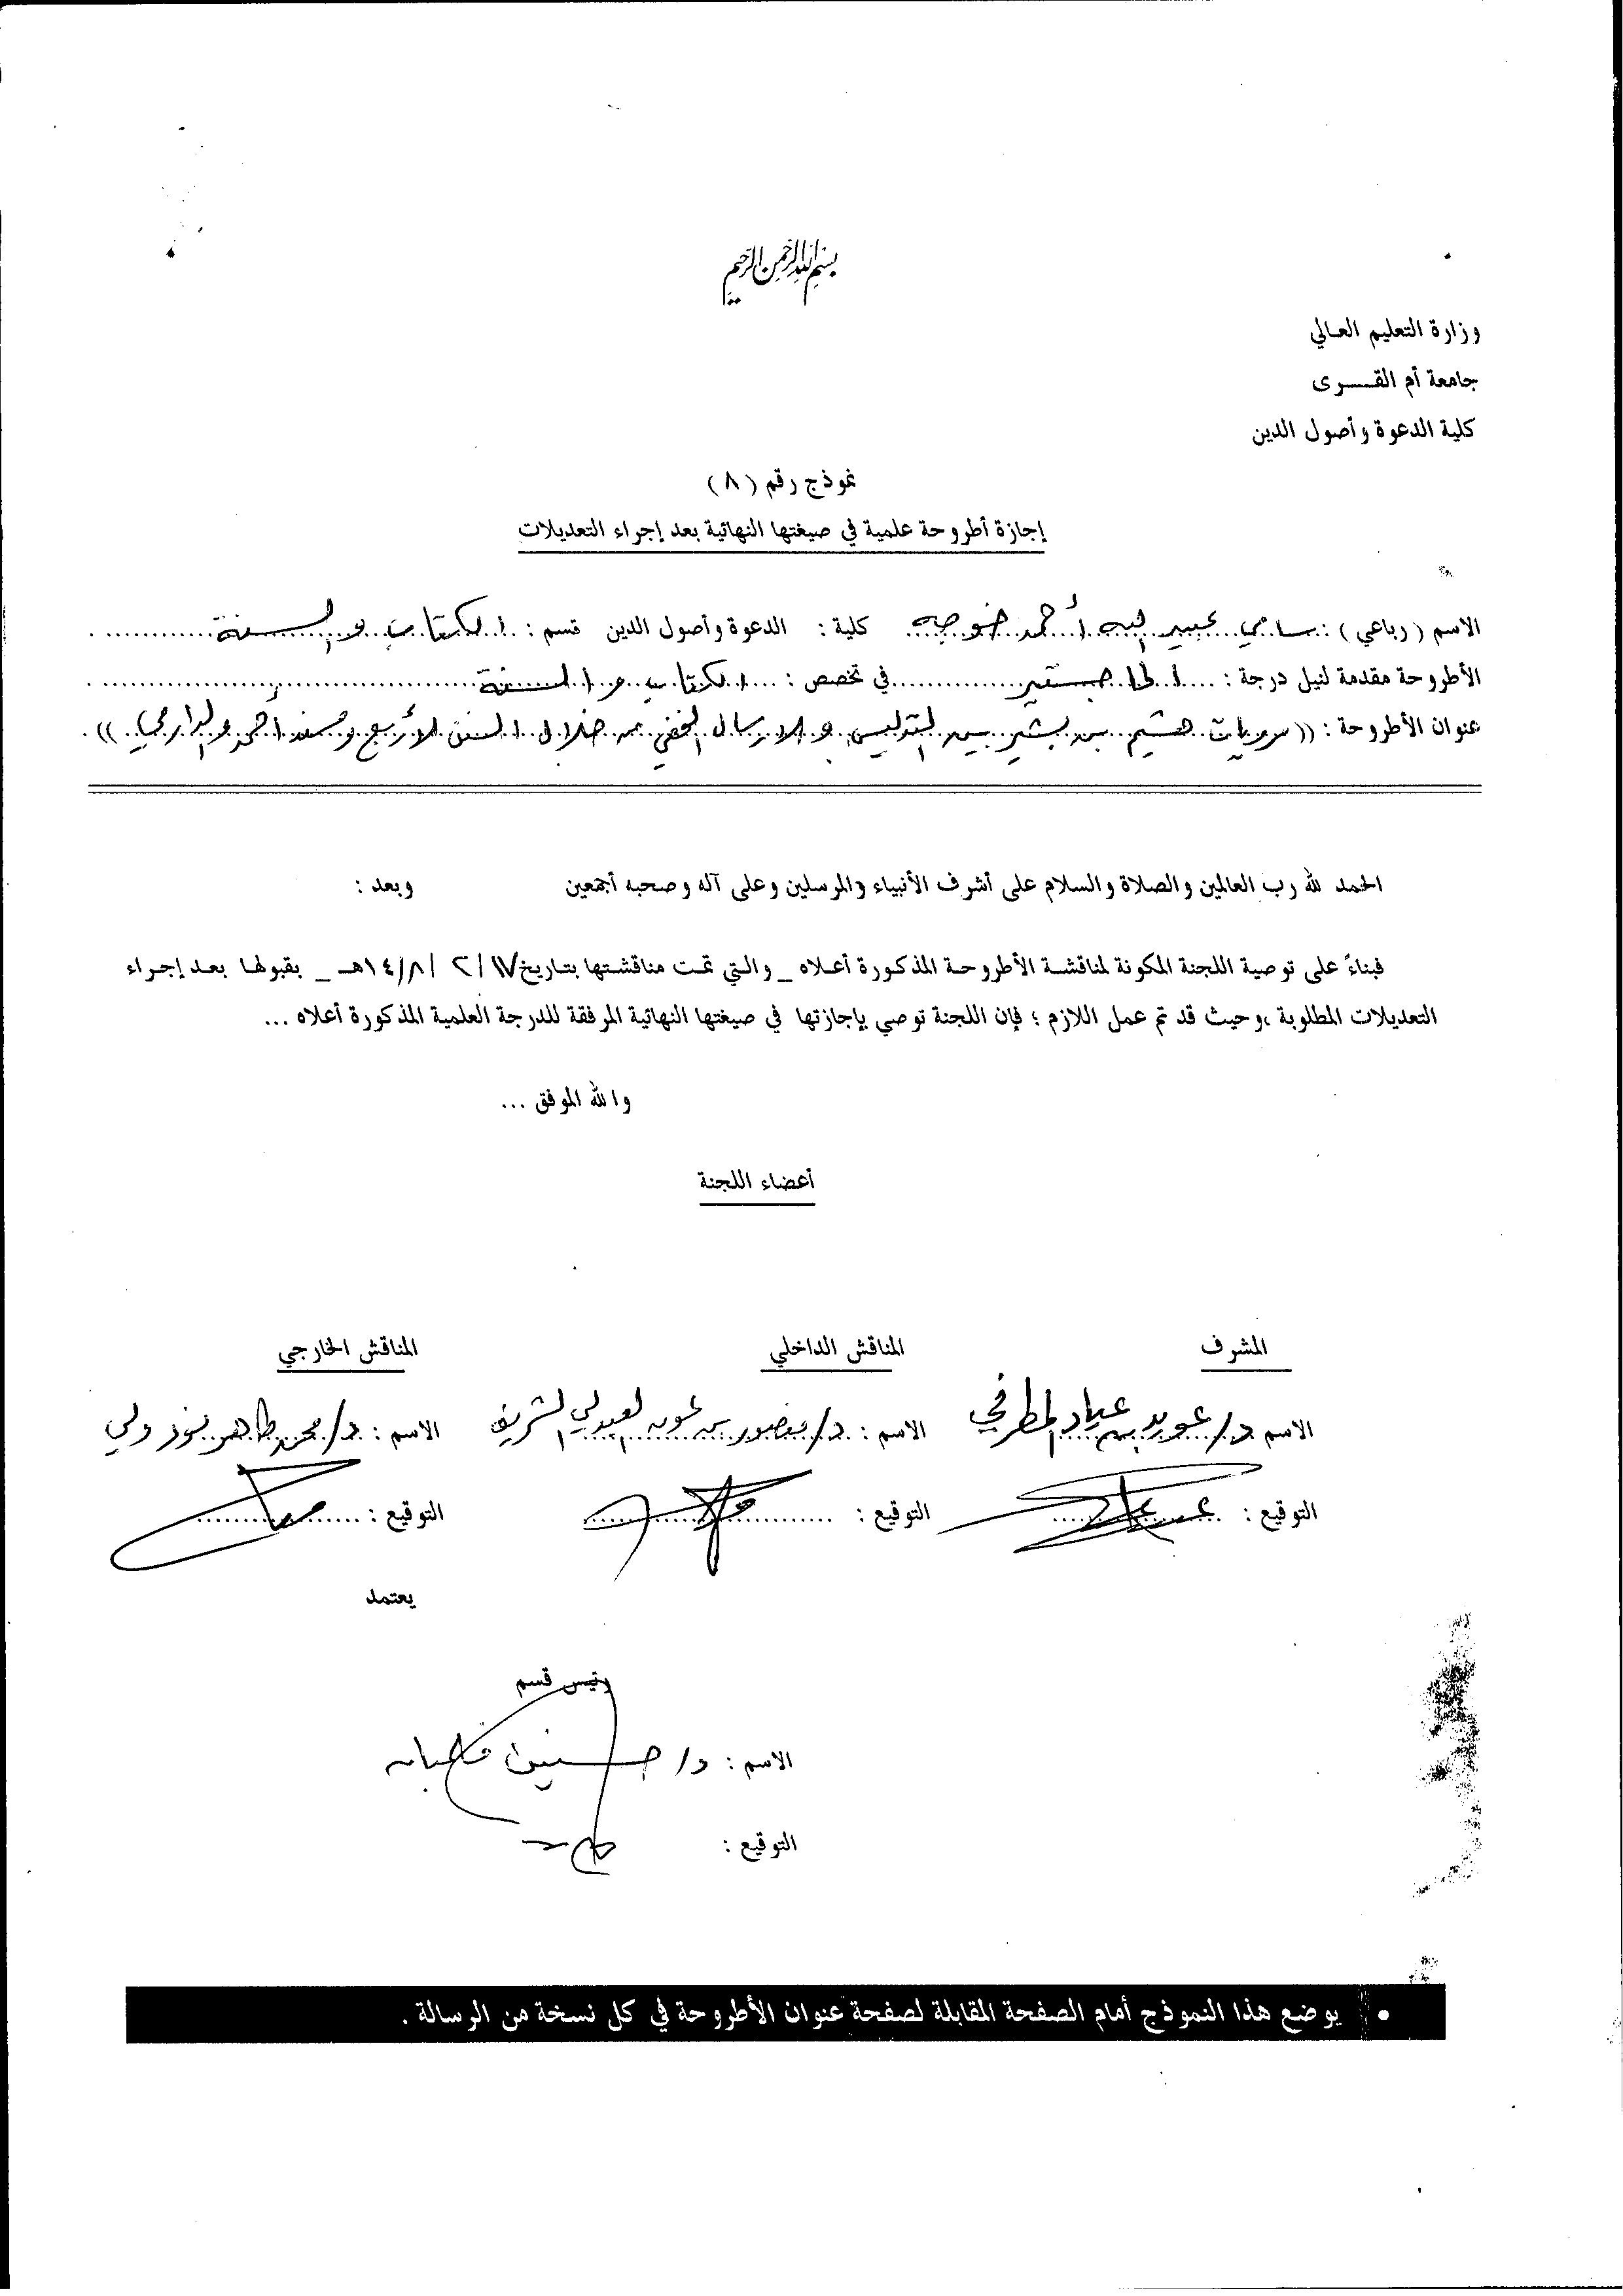 بسم الله الرحمن الرحيم
وزارة التعليم العالي
جامعة أم القــرى
كلية الدعوة وأصول الدين
نموذج رقم (٨)
إجازة أطروحة علمية في صيغتها النهائية بعد إجراء التعديلات
الاسم (رباعي) : سامي عبيد الله أحمد خوجه كلية : الدعوة وأصول الدين قسم : الكتاب والسنة
الأطروحة مقدمة لنيل درجة : الماجستير في تخصص : الكتاب والسنة
عنوان الأطروحة : (( مرويات هشيم بن بشير بين التدليس والإرسال الخفي من خلال السنن الأربع ومسند أحمد والدارمي )) .
الحمد لله رب العالمين والصلاة والسلام على أشرف الأنبياء والمرسلين وعلى آله وصحبه أجمعين وبعد :
فبناءً على توصية اللجنة المكونة لمناقشة الأطروحة المذكورة أعلاه _ والتي تمت مناقشتها بتاريخ _ بقبولها بعد إجراء
التعديلات المطلوبة ،وحيث قد تم عمل اللازم ؛ فإن اللجنة توصي بإجازتها في صيغتها النهائية المرفقة للدرجة العلمية المذكورة أعلاه ...
والله الموفق ...
أعضاء اللجنة
المشرف المناقش الداخلي المناقش الخارجي
الاسم د/ عويد بن عياد المطرفي الاسم : د/ منصور بن عون العبدلي الشريف الاسم : د/ محمد طاهر نور ولي
التوقيع : التوقيع : التوقيع :
يعتمد
رئيس قسم
الاسم : د/
التوقيع :
• يوضع هذا النموذج أمام الصفحة المقابلة لصفحة عنوان الأطروحة في كل نسخة من الرسالة .